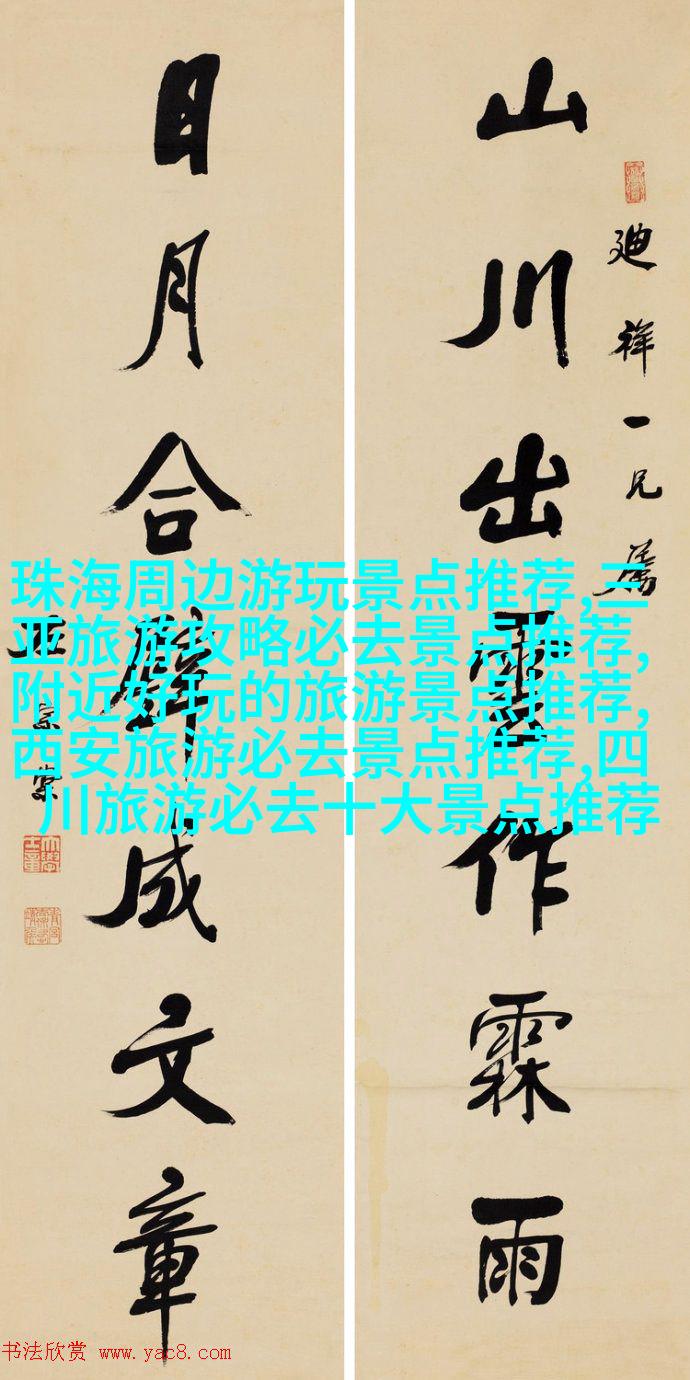 廸祥一兄屬
山川出雲作霖雨
日月合璧成文章
左宗棠
大學士章
珠海周边游玩景点推荐,三
亚旅游攻略必去景点推荐,
附近好玩的旅游景点推荐,
西安旅游必去景点推荐,四
川旅游必去十大景点推荐
书法欣赏 www.yac8.com